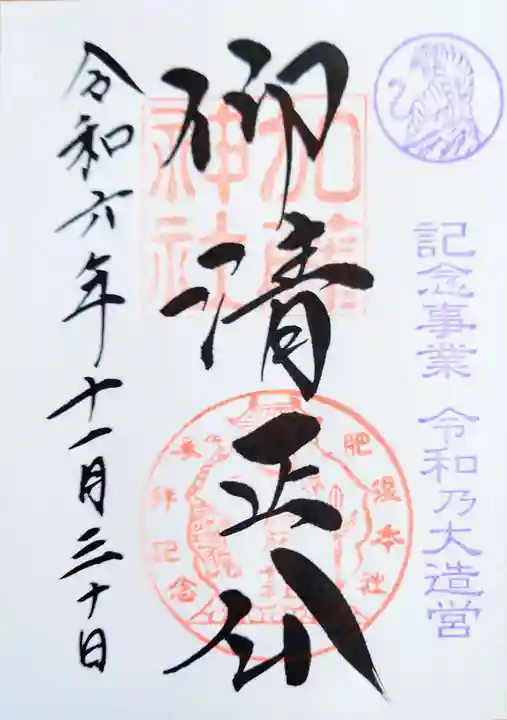 記念事業 令和乃大造営
御清正公
加藤神社
肥後本社参拝記念
令和六年十一月三十日